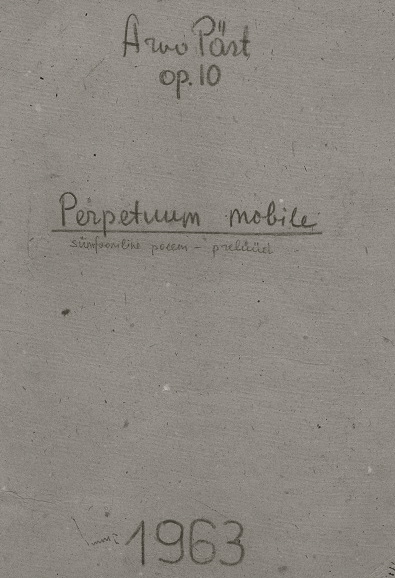 Arvo Pärt
op. 10
Perpetuum mobile
sümfooniline poeem - prelüüd
1963